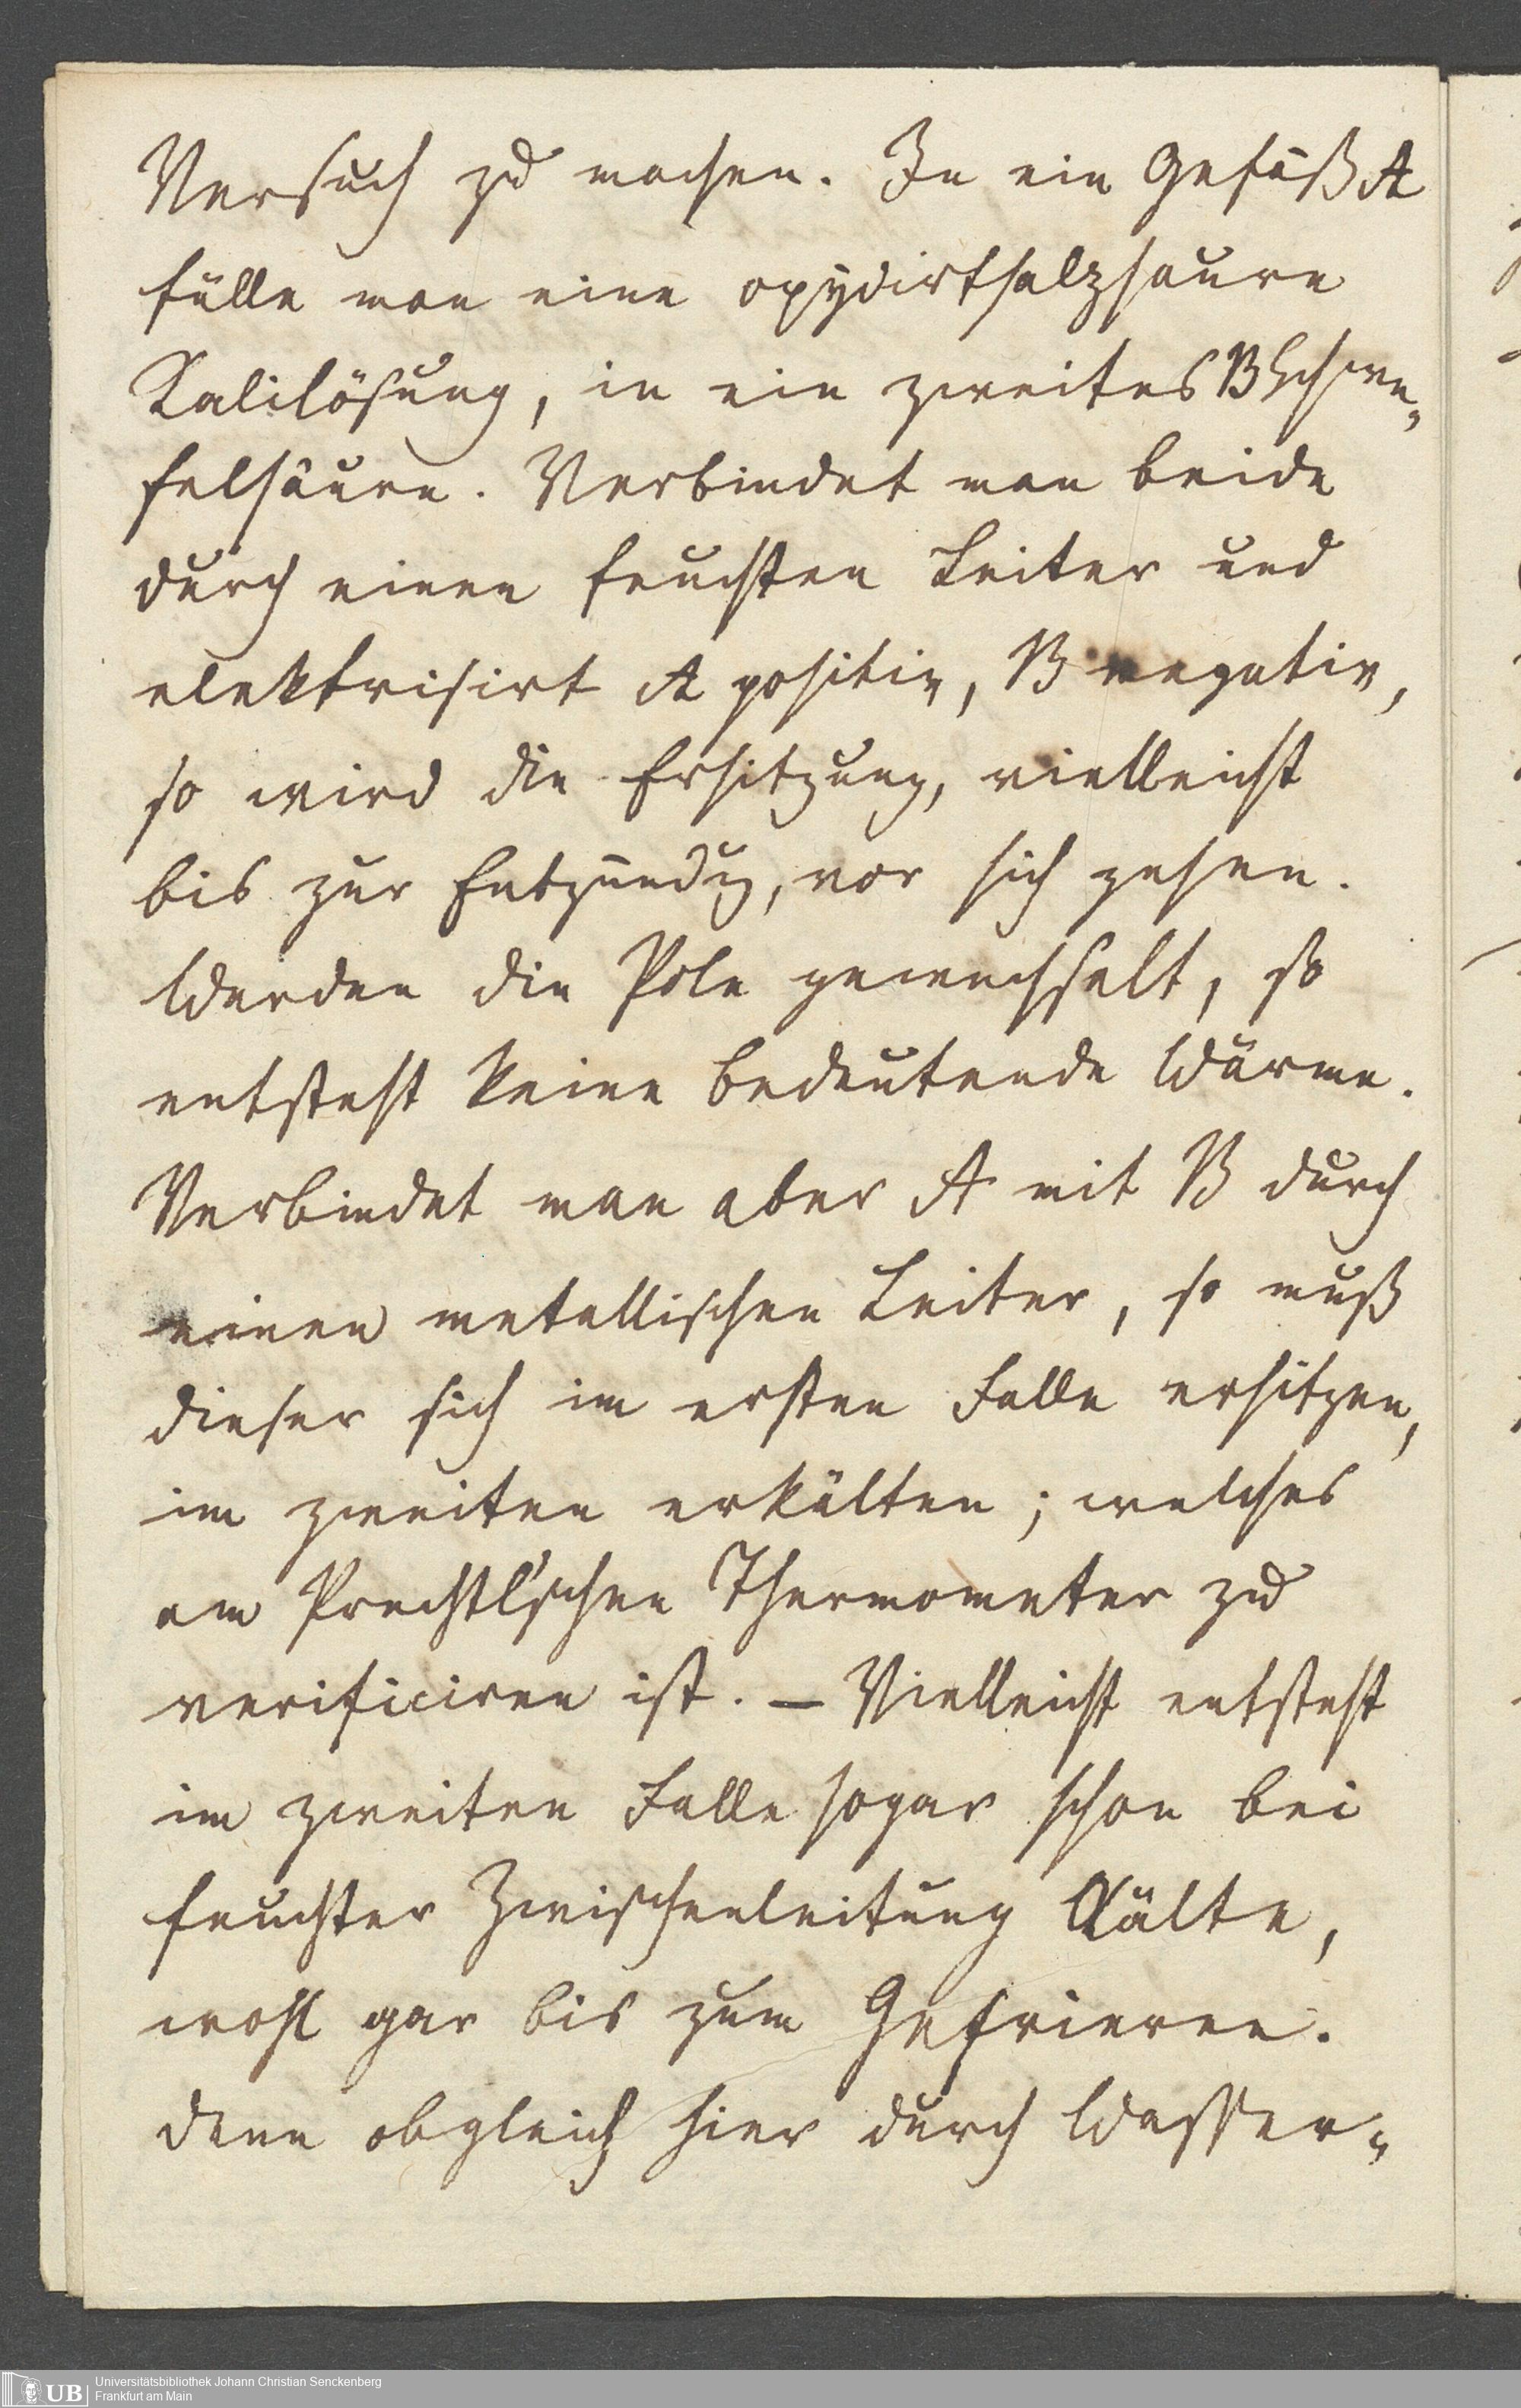 Versuch zu machen. In ein Gefäß A
fülle man eine oxydirtsalzsaure
Kalilösung, in ein zweites B Schwe-
felsäure. Verbindet man beide
durch einen feuchten Leiter und
elektrisirt A positiv, B negativ,
so wird die Erhitzung, vielleicht
bis zur Entzündg, vor sich gehen.
Werden die Pole gewechselt, so
entsteht keine bedeutende Wärme.
Verbindet man aber A mit B durch
einen metallischen Leiter, so muß
dieser sich im ersten Falle erhitzen,
im zweiten erkälten; welches
am Prechtl'schen Thermometer zu
verificiren ist. – Vielleicht entsteht
im zweiten Falle sogar schon bei
feuchter Zwischenleitung Kälte,
wohl gar bis zum Gefrieren.
Denn obgleich hier durch Wasser-
UB Universitätsbibliothek Johann Christian Senckenberg
Frankfurt am Main